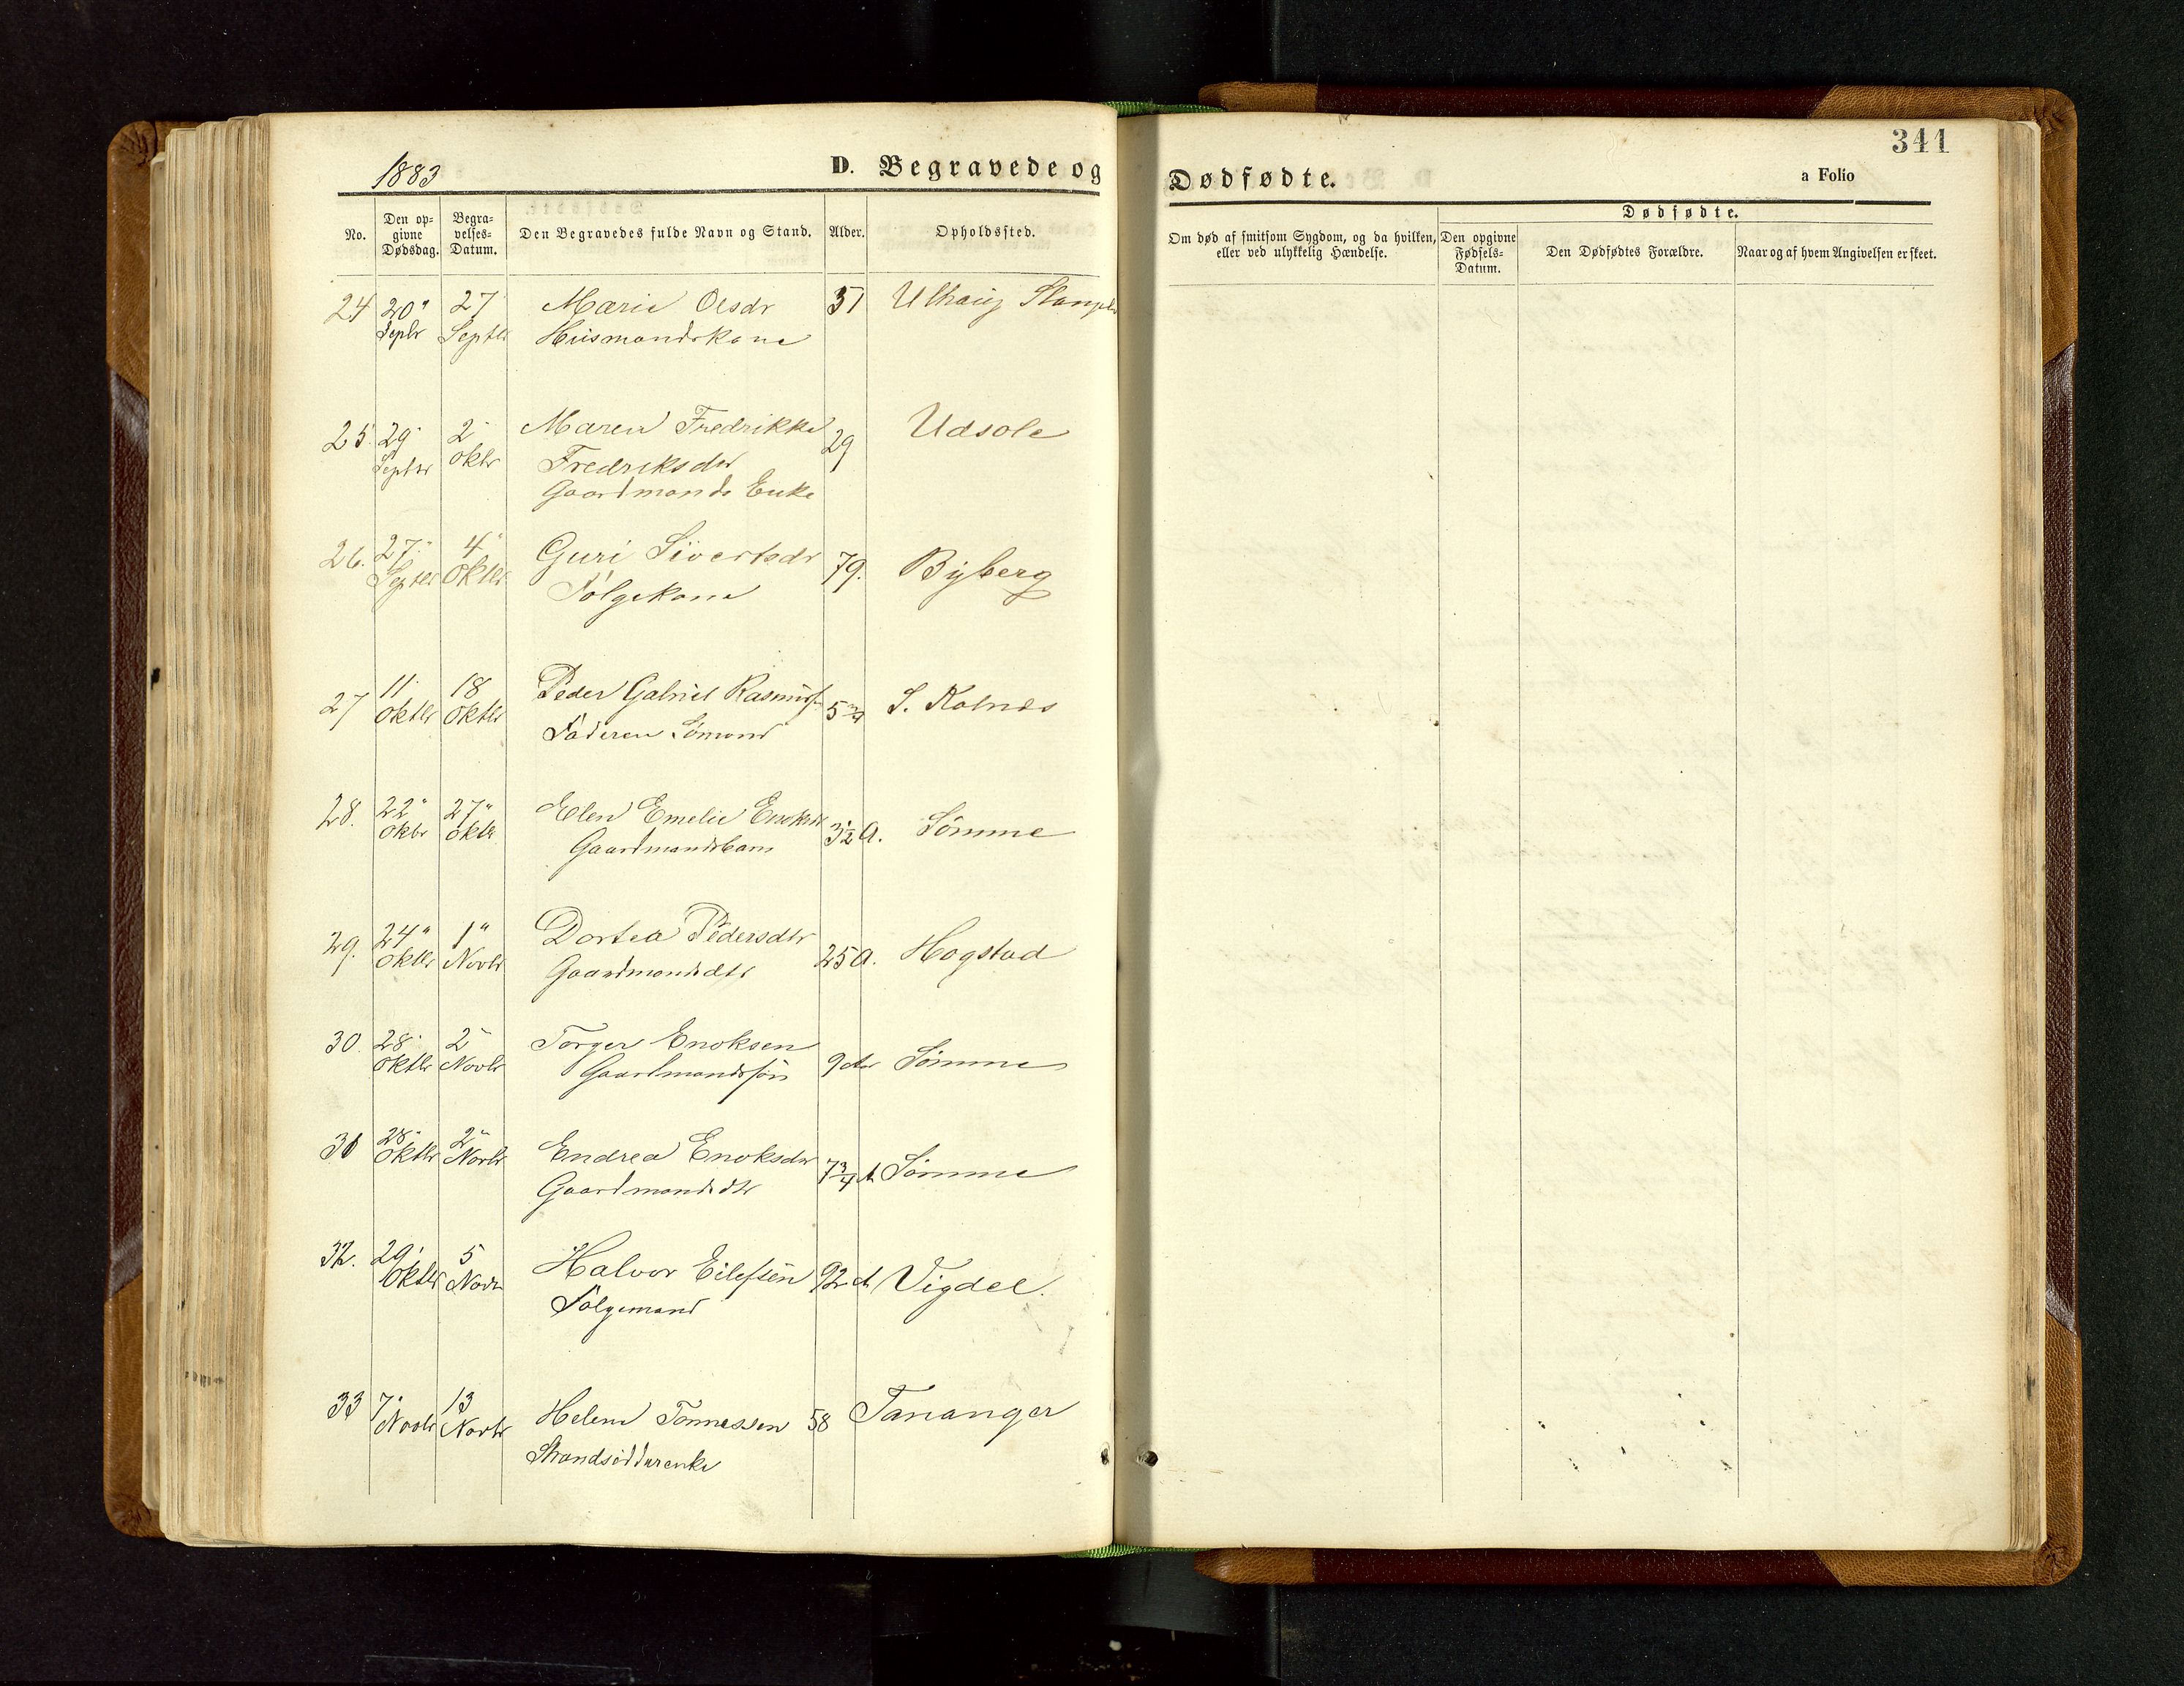 1883
D. Begravede og
Dødfødte.
341
a Folio
No.
Den op-
givne
Dødsdag.
Begra-
velses-
Datum.
Den Begravedes fulde Navn og Stand.
Alder.
Opholdssted.
Om død af smitsom Sygdom, og da hvilken,
eller ved ulykkelig Hændelse.
Dødfødte.
Den opgivne
Fødsels-
Datum.
Den Dødfødtes Forældre.
Naar og af hvem Angivelsen er skeet.
24 20" 27 Marie Olsdr 31 Ulhaug
Septbr Septbr Husmandskone
25 29 2 Maren Fredrikke 29 Udsole
Septbr oktbr Fredriksdtr
Gaardmands Enke
26. 27 4 Guri Sivertsdr 79. Byberg
Septbr Oktbr Følgekone
27 11 18 Peder Gabriel Rasmusf. S. Kolnes
oktbr oktbr Faderen Sømand
28. 22" 27" Elen Emelie Enoksdr 3½ A. Sømme
oktbr oktbr Gaardmandsbarn
29. 24" 1" Dortea Pedersdtr 25 A. Hogstad
oktbr Novbr Gaardmandsdtr
30. 28 2 Torger Enoksen 9 Sømme
oktbr Novbr Gaardmandssøn
31 28" 2" Endrea Enoksdtr 7¾ A Sømme
oktbr Novbr Gaardmandsdtr
32. 29 5 Halvor Eilefsen 92 A Vigdel.
Oktbr Novbr Følgemand
33 7 13 Helene Tønnessen 58 Tananger
Novbr Novbr Strandsidderenke